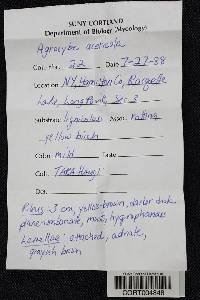 SUNY CORTLAND
Department of Biology (Mycology)
Agrocybe
Col. No. 22 Date 7-27-88
Location N.Y. Hamilton Co,
Lake, Long Point, Site 3
Substrate lignicolous Assoc. rotting
yellow birch
Odor mild
Col.
Det.
Pileus - 3 cm, yellow-brown, darker disk,
plane-umbonate, moist, hygrophanous
Lamellae: attached, adnate,
grayish brown
CORT004346